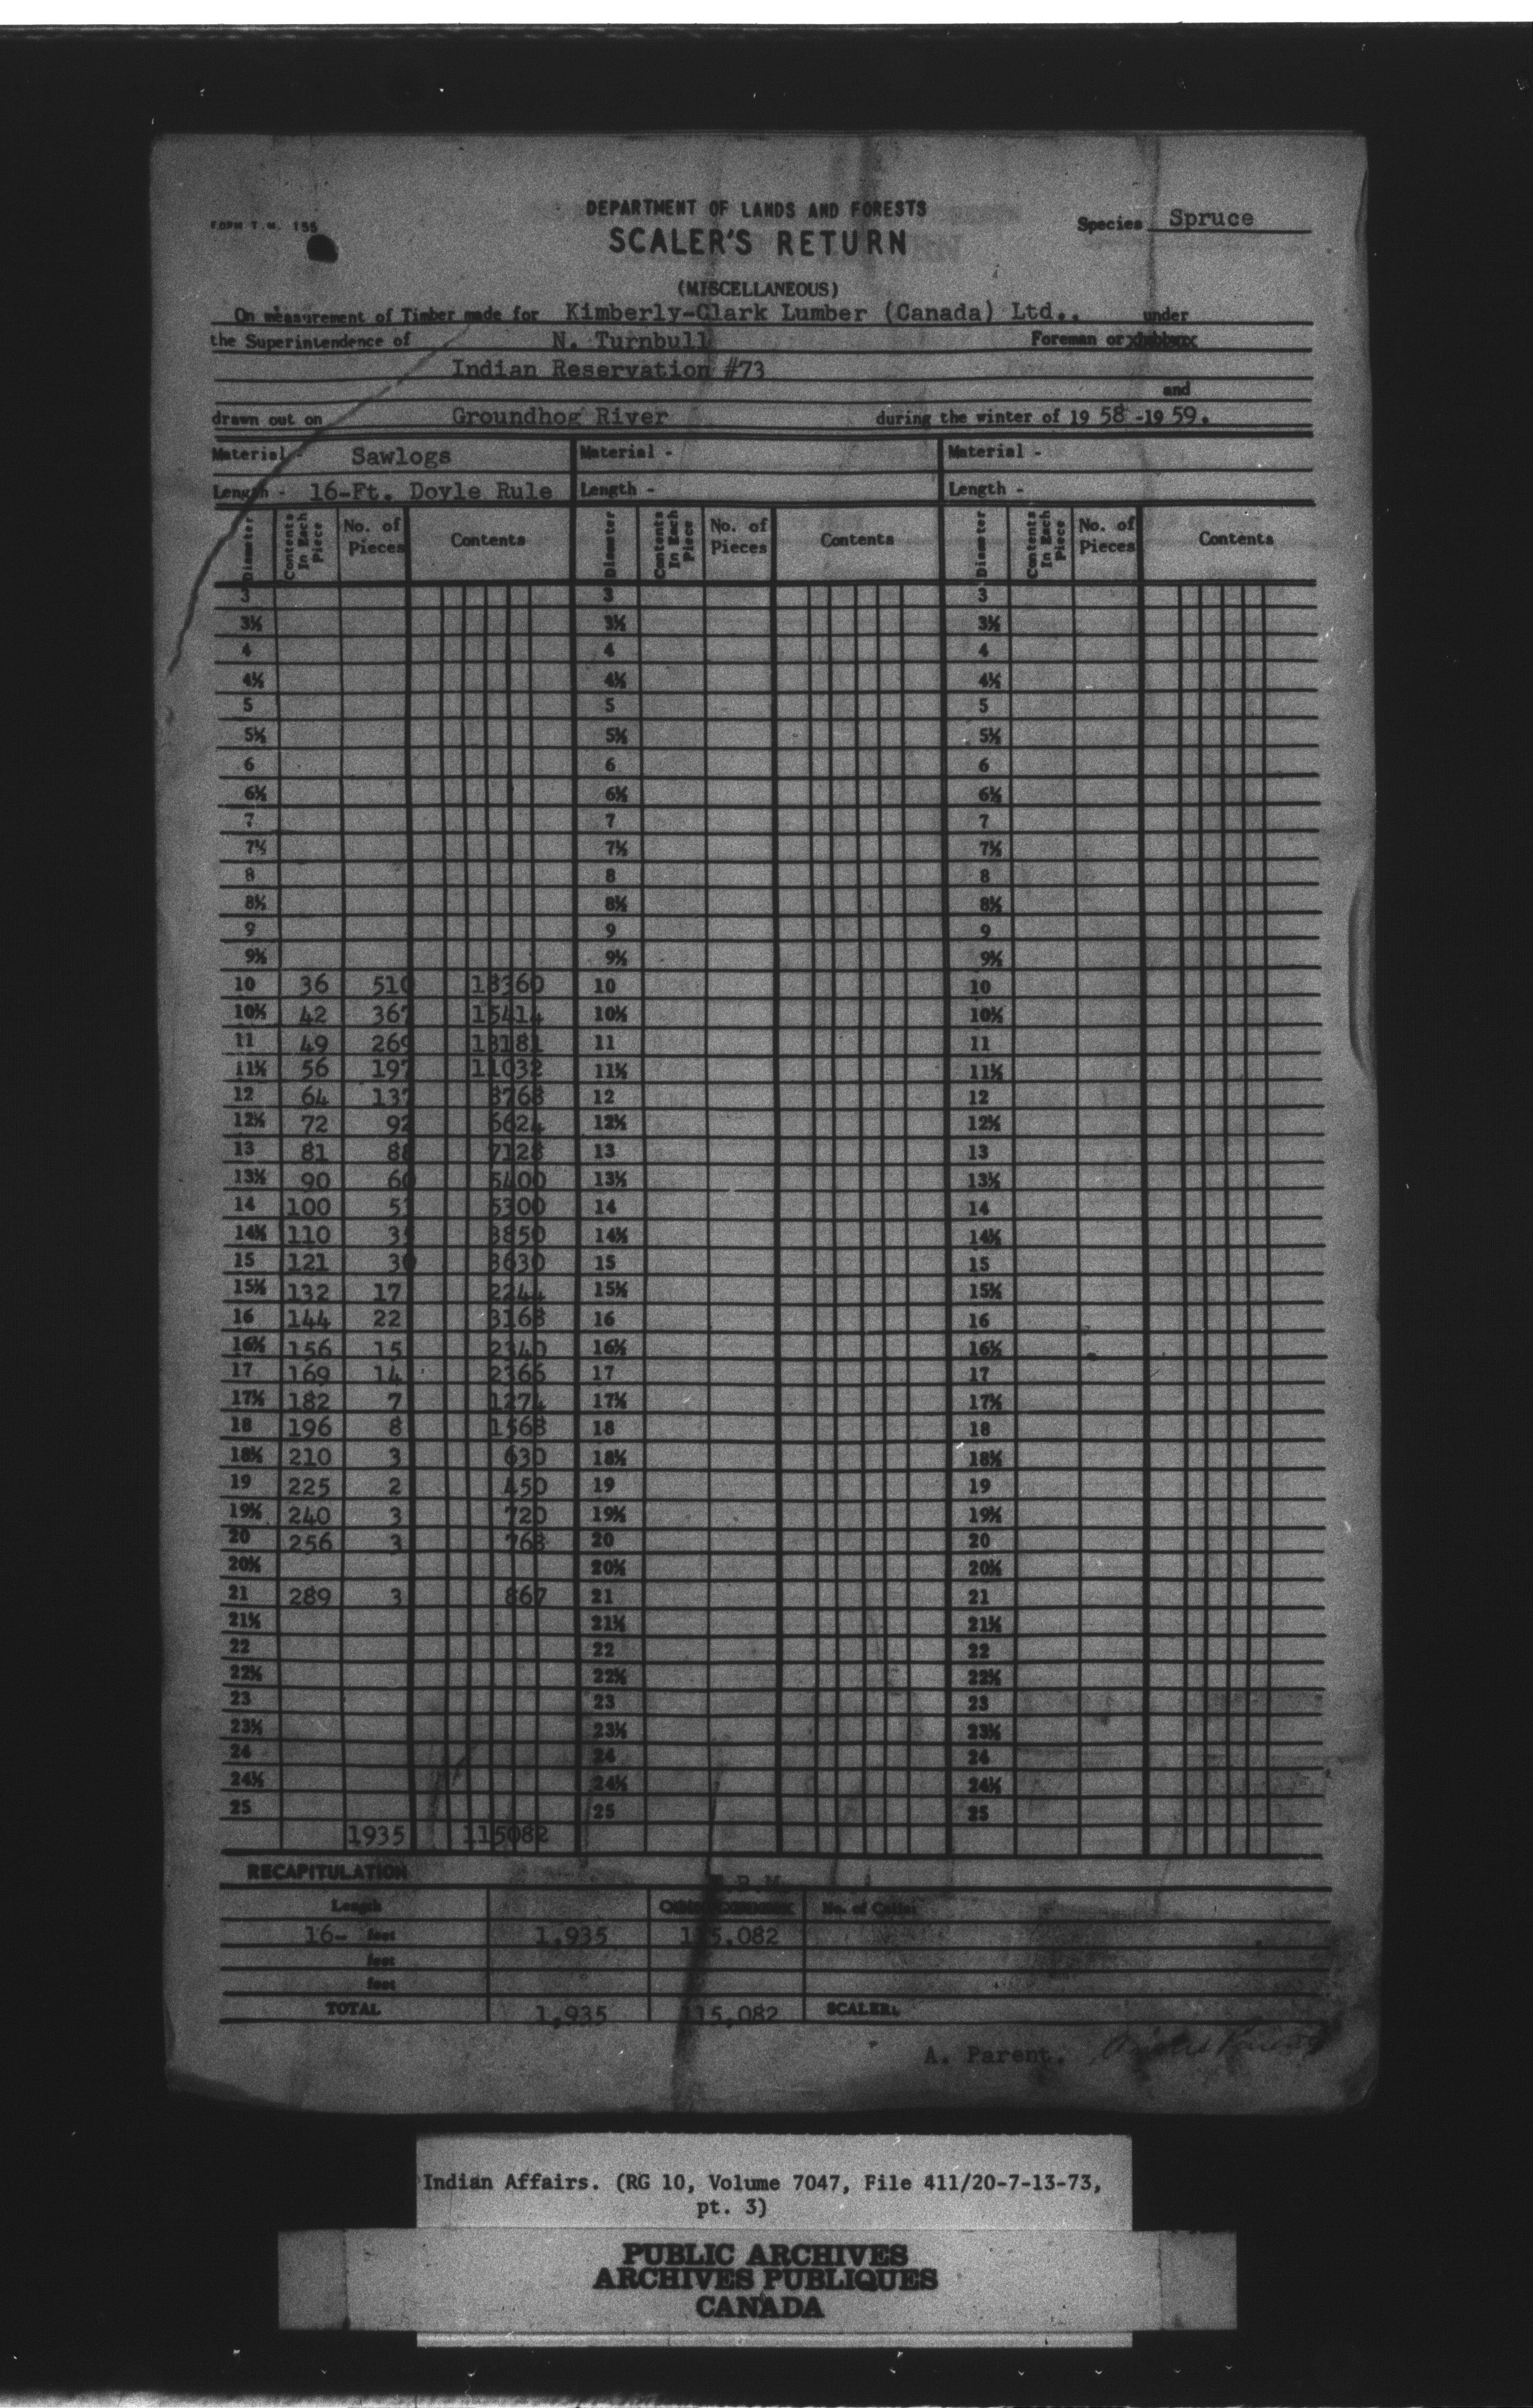 FORM T.M. 155
DEPARTMENT OF LANDS AND FORESTS
Species Spruce
SCALER'S RETURN
(MISCELLANEOUS)
On measurement of Timber made for Kimberly-Clark Lumber (Canada) Ltd.. under
the Superintendence of N. Turnbull Foreman or
Indian Reservation #73
and
drawn out on Groundhog River during the winter of 19 58 -19 59.
Material - Sawlogs Material - Material -
Length - 16-Ft. Doyle Rule Length - Length -
Diameter Contents In Each Piece No. of Pieces Contents Diameter Contents In Each Piece No. of Pieces Contents Diameter Contents In Each Piece No. of Pieces Contents
3 3 3
3½ 3½ 3½
4 4 4
4½ 4½ 4½
5 5 5
5½ 5½ 5½
6 6 6
6½ 6½ 6½
7 7 7
7½ 7½ 7½
8 8 8
8½ 8½ 8½
9 9 9
9½ 9½ 9½
10 36 510 18360 10 10
10½ 42 367 15414 10½ 10½
11 49 269 13181 11 11
11½ 56 197 11032 11½ 11½
12 64 137 8768 12 12
12½ 72 92 6624 12½ 12½
13 81 88 7128 13 13
13½ 90 60 5400 13½ 13½
14 100 53 5300 14 14
14½ 110 35 3850 14½ 14½
15 121 30 3630 15 15
15½ 132 17 2244 15½ 15½
16 144 22 3168 16 16
16½ 156 15 2340 16½ 16½
17 169 14 2366 17 17
17½ 182 7 1274 17½ 17½
18 196 8 1568 18 18
18½ 210 3 630 18½ 18½
19 225 2 450 19 19
19½ 240 3 720 19½ 19½
20 256 3 768 20 20
20½ 20½ 20½
21 289 3 867 21 21
21½ 21½ 21½
22 22 22
22½ 22½ 22½
23 23 23
23½ 23½ 23½
24 24 24
24½ 24½ 24½
25 25 25
1935 115082
RECAPITULATION
Length No. of Culls:
16- feet 1,935 115,082
feet
feet
TOTAL 1,935 115,082 SCALER:
A. Parent.
Indian Affairs. (RG 10, Volume 7047, File 411/20-7-13-73,
pt. 3)
PUBLIC ARCHIVES
ARCHIVES PUBLIQUES
CANADA